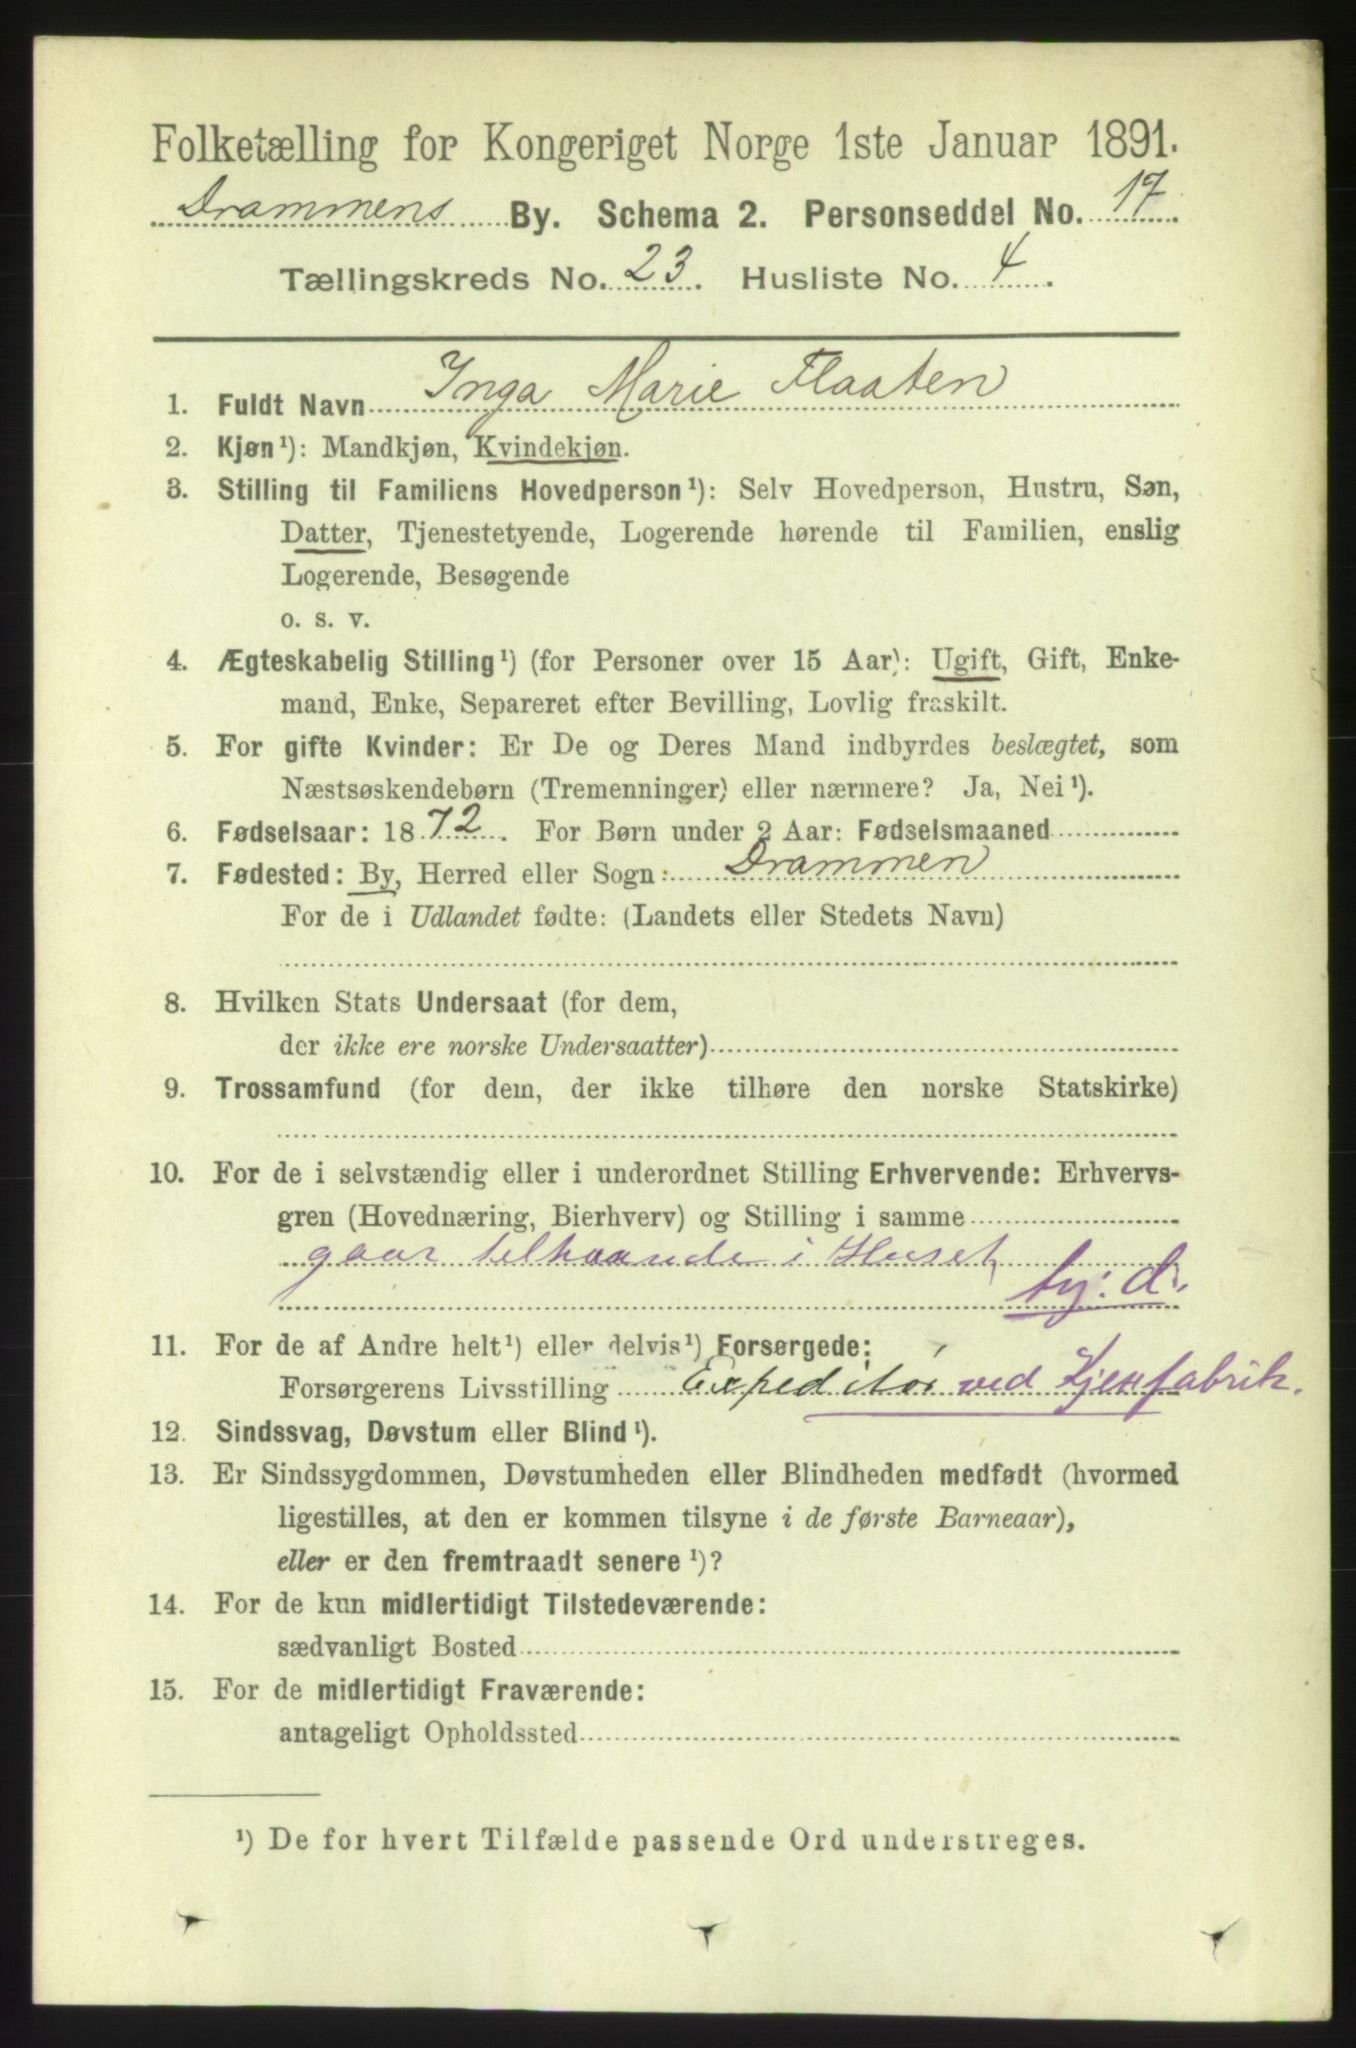 Folketælling for Kongeriget Norge 1ste Januar 1891.
Drammens By. Schema 2. Personseddel No. 17.
Tællingskreds No. 23. Husliste No. 4.
1. Fuldt Navn Inga Marie Flaaten
2. Kjøn¹): Mandkjøn, Kvindekjøn.
3. Stilling til Familiens Hovedperson¹): Selv Hovedperson, Hustru, Søn,
Datter, Tjenestetyende, Logerende hørende til Familien, enslig
Logerende, Besøgende
o. s. v.
4. Ægteskabelig Stilling¹) (for Personer over 15 Aar): Ugift, Gift, Enke-
mand, Enke, Separeret efter Bevilling, Lovlig fraskilt.
5. For gifte Kvinder: Er De og Deres Mand indbyrdes beslægtet, som
Næstsøskendebørn (Tremenninger) eller nærmere? Ja, Nei¹).
6. Fødselsaar: 1872. For Børn under 2 Aar: Fødselsmaaned
7. Fødested: By, Herred eller Sogn: Drammen
For de i Udlandet fødte: (Landets eller Stedets Navn)
8. Hvilken Stats Undersaat (for dem,
der ikke ere norske Undersaatter)
9. Trossamfund (for dem, der ikke tilhøre den norske Statskirke)
10. For de i selvstændig eller i underordnet Stilling Erhvervende: Erhvervs-
gren (Hovednæring, Bierhverv) og Stilling i samme
gaar tilhaande i Huset
ty: d.
11. For de af Andre helt¹) eller delvis¹) Forsørgede:
Forsørgerens Livsstilling Expeditør ved Kjexfabrik.
12. Sindssvag, Døvstum eller Blind¹).
13. Er Sindssygdommen, Døvstumheden eller Blindheden medfødt (hvormed
ligestilles, at den er kommen tilsyne i de første Barneaar),
eller er den fremtraadt senere¹)?
14. For de kun midlertidigt Tilstedeværende:
sædvanligt Bosted
15. For de midlertidigt Fraværende:
antageligt Opholdssted
¹) De for hvert Tilfælde passende Ord understreges.